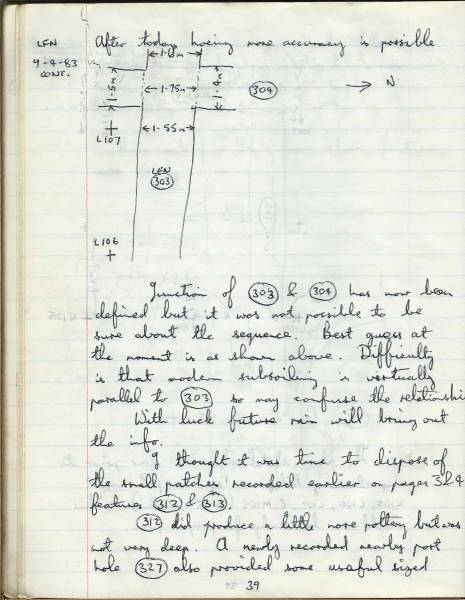 LEN
9-4-83
CONT.
After todays hoeing more accuracy is possible
1.5m
1.75m
1.4m
304
N
1.55m
L107
LEN
303
L106
Junction of 303 & 304 has now been
defined but it was not possible to be
sure about the sequence. Best guess at
the moment is as shown above. Difficulty
is that modern subsoiling is vertually
parallel to 303 so may confuse the relationshi
With luck future rain will bring out
the info.
I thought it was time to dispose of
the small patches recorded earlier on pages 3 & 4
features 312 & 313.
312 did produce a little more pottery but was
not very deep. A newly recorded nearby post
hole 327 also provided some useful sized
39